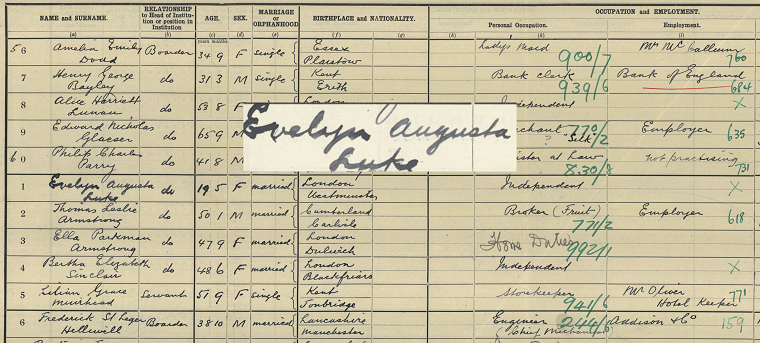 NAME and SURNAME.
RELATIONSHIP to Head of Institution or position in Institution
AGE.
SEX.
MARRIAGE or ORPHANHOOD
BIRTHPLACE and NATIONALITY.
OCCUPATION and EMPLOYMENT.
Personal Occupation.
Employment.
(a) (b) (c) (d) (e) (f) (g) (h) (k) (l)
years months
56 Amelia Emily Boarder 34 9 F single Essex Ladys Maid 900/7 Mrs Mc Callum 760
Dodd Plaistow
7 Henry George do 31 3 M single Kent Bank clerk 939/6 Bank of England 684
Bayley Erith
8 Alice Harriett do 53 8 F London Independent X
9 Edward Nicholas do 65 9 M 770/2 Employer 635
Glaeser "Silk"
60 Philip Charles do 41 8 M at Law 830/8 not practising 731
Parry
Evelyn Augusta
Luke
1 Evelyn Augusta do 19 5 F married London Independent X
Luke Westminster
2 Thomas Leslie do 50 1 M married Cumberland Broker (Fruit) 771/2 Employer 618
Armstrong Carlisle
3 Ella Parkman do 47 9 F married London Home Duties 992/1
Armstrong Dulwich
4 Bertha Elizabeth do 48 6 F married London Independent X
Sinclair Blackfriars
5 Lilian Grace Servant 51 9 F single Kent Storekeeper 941/6 Mr Oliver 771
Muirhead Tonbridge Hotel Keeper
6 Frederick St Leger Boarder 38 10 M married Lancashire Engineer 244/1 Addison & Co 159
Helliwill Manchester